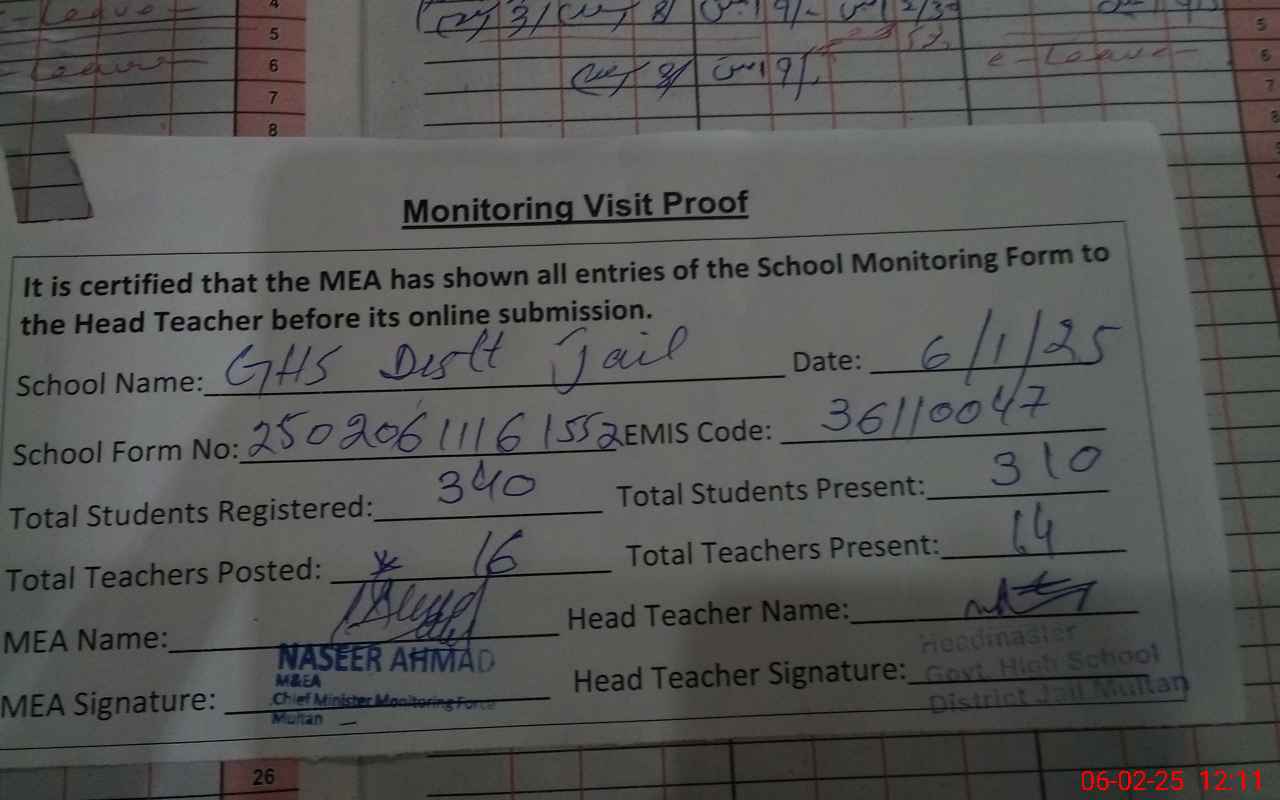 4
5
5
e-Leave
6
6
7
7
8
8
Monitoring Visit Proof
It is certified that the MEA has shown all entries of the School Monitoring Form to
the Head Teacher before its online submission.
School Name: GHS Distt Jail Date: 6/1/25
School Form No: 25020611161552 EMIS Code: 36110047
Total Students Registered: 340 Total Students Present: 310
Total Teachers Posted: 16 Total Teachers Present: 14
MEA Name: Head Teacher Name:
NASEER AHMAD
M&EA
Chief Minister Monitoring Force
Multan
MEA Signature: Head Teacher Signature:
Headmaster
Govt. High School
District Jail Multan
26
06-02-25 12:11